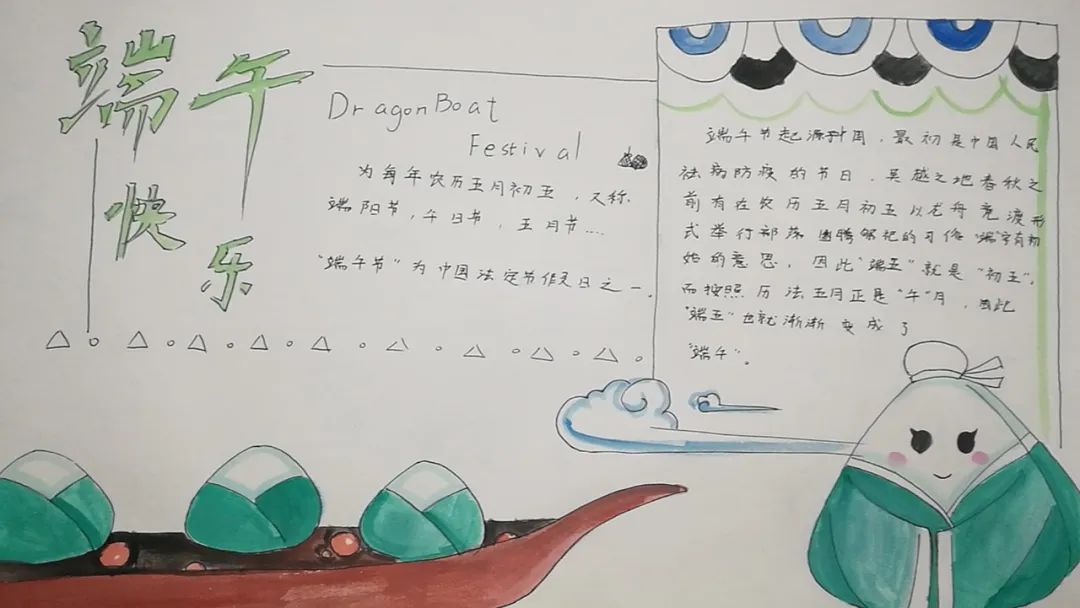 端午
快乐
Dragon Boat
Festival
为每年农历五月初五，又称，
端阳节，午日节，五月节....
"端午节"为中国法定节假日之一。
端午节起源中国，最初是中国人民
祛病防疫的节日，吴越之地春秋之
前有在农历五月初五以龙舟竞渡形
式举行部落图腾祭祀的习俗"端"字有初
始的意思，因此"端五"就是"初五"。
而按照历法五月正是"午"月，因此
"端五"也就渐渐变成了
"端午"。